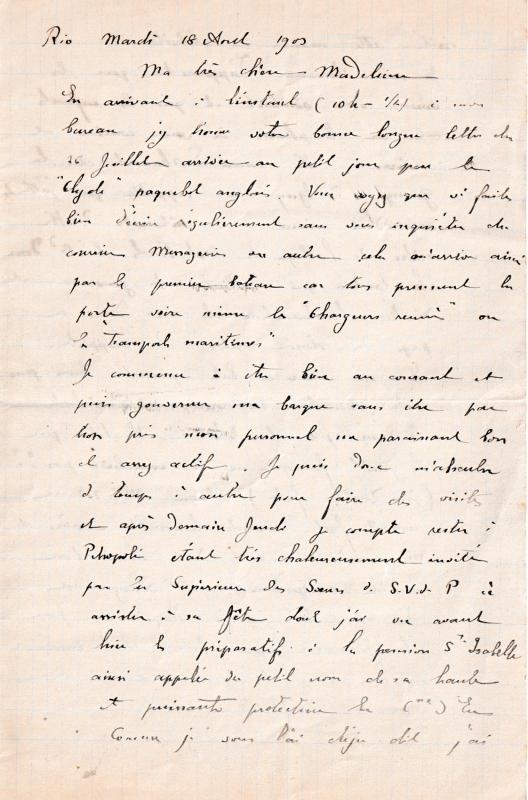 Rio Mardi 18 Août 1903
Ma très chère Madeleine
En arrivant à l'instant (10h - 1/2) à mon
bureau j'y trouve votre bonne longue lettre du
26 Juillet arrivée au petit jour par le
"Clyde" paquebot anglais. Vous voyez que vs faites
bien d'écrire régulièrement sans vous inquiéter du
courrier Messageries ou autre cela m'arrive ainsi
par le premier bateau car tous prennent la
poste voire même les "Chargeurs réunis" ou
les "Transports maritimes"
Je commence à être bien au courant et
puis gouverner ma barque sans être par
trop pris mon personnel me paraissant bon
et assez actif. Je puis donc m'absenter
de temps à autre pour faire des visites
et après demain Jeudi je compte rester à
Pétropolis étant très chaleureusement invité
par la Supérieure des Sœurs de S.V.d. P à
assister à sa fête dont j'ai vu avant
hier les préparatifs à la pension Ste Isabelle
ainsi appelée du petit nom de sa haute
et puissante protectrice la
Comme je vous l'ai déjà dit j'ai